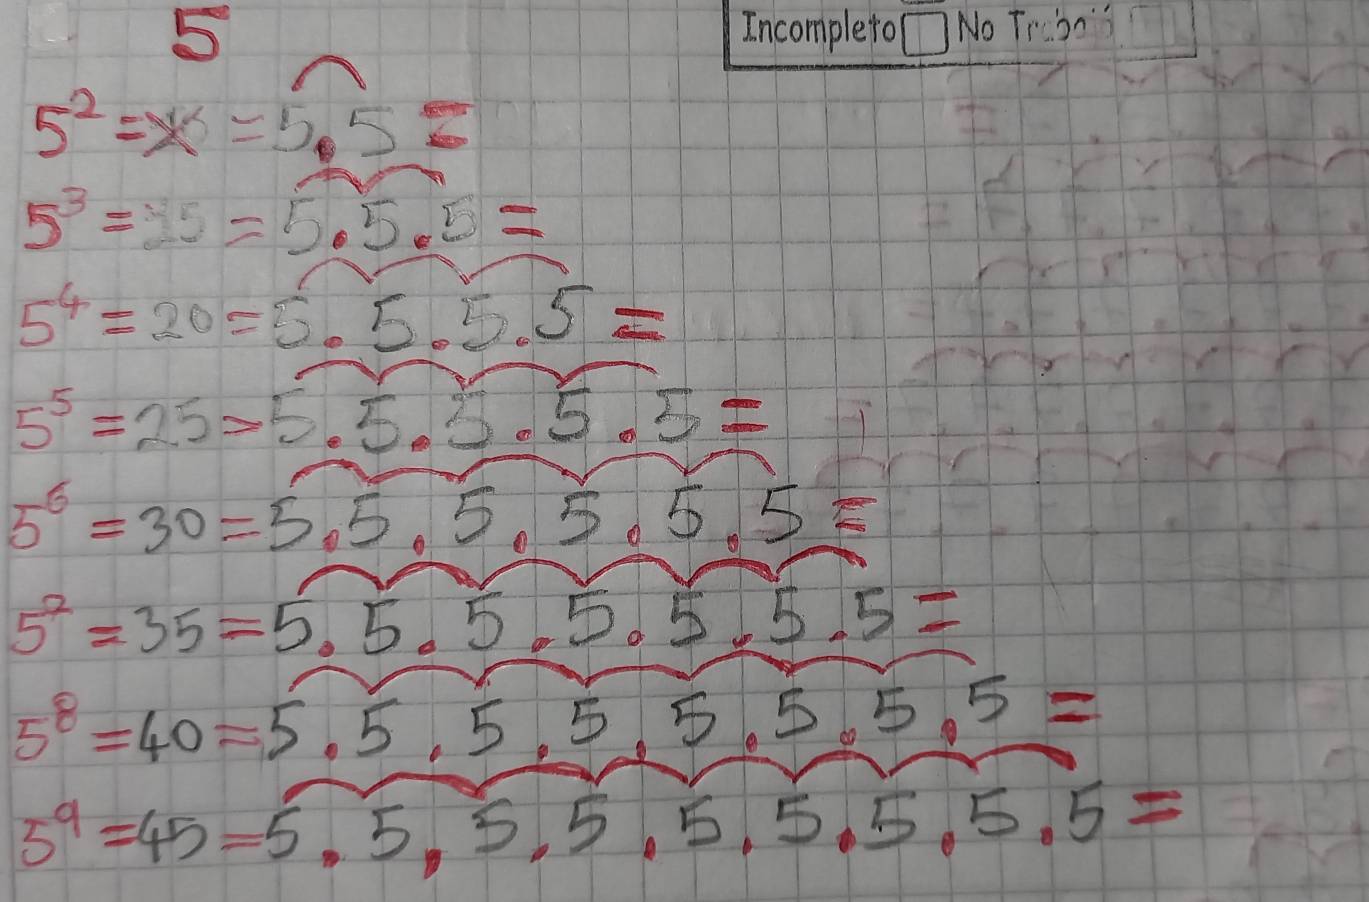 Incompleto No Trabajó
5
5² = = 5.5 =
5³ = 15 = 5.5.5 =
5⁴ = 20 = 5.5.5.5 =
5⁵ = 25 = 5.5.5.5.5 =
5⁶ = 30 = 5.5.5.5.5.5 =
5⁷ = 35 = 5.5.5.5.5.5.5 =
5⁸ = 40 = 5.5.5.5.5.5.5.5 =
5⁹ = 45 = 5.5.5.5.5.5.5.5.5 =